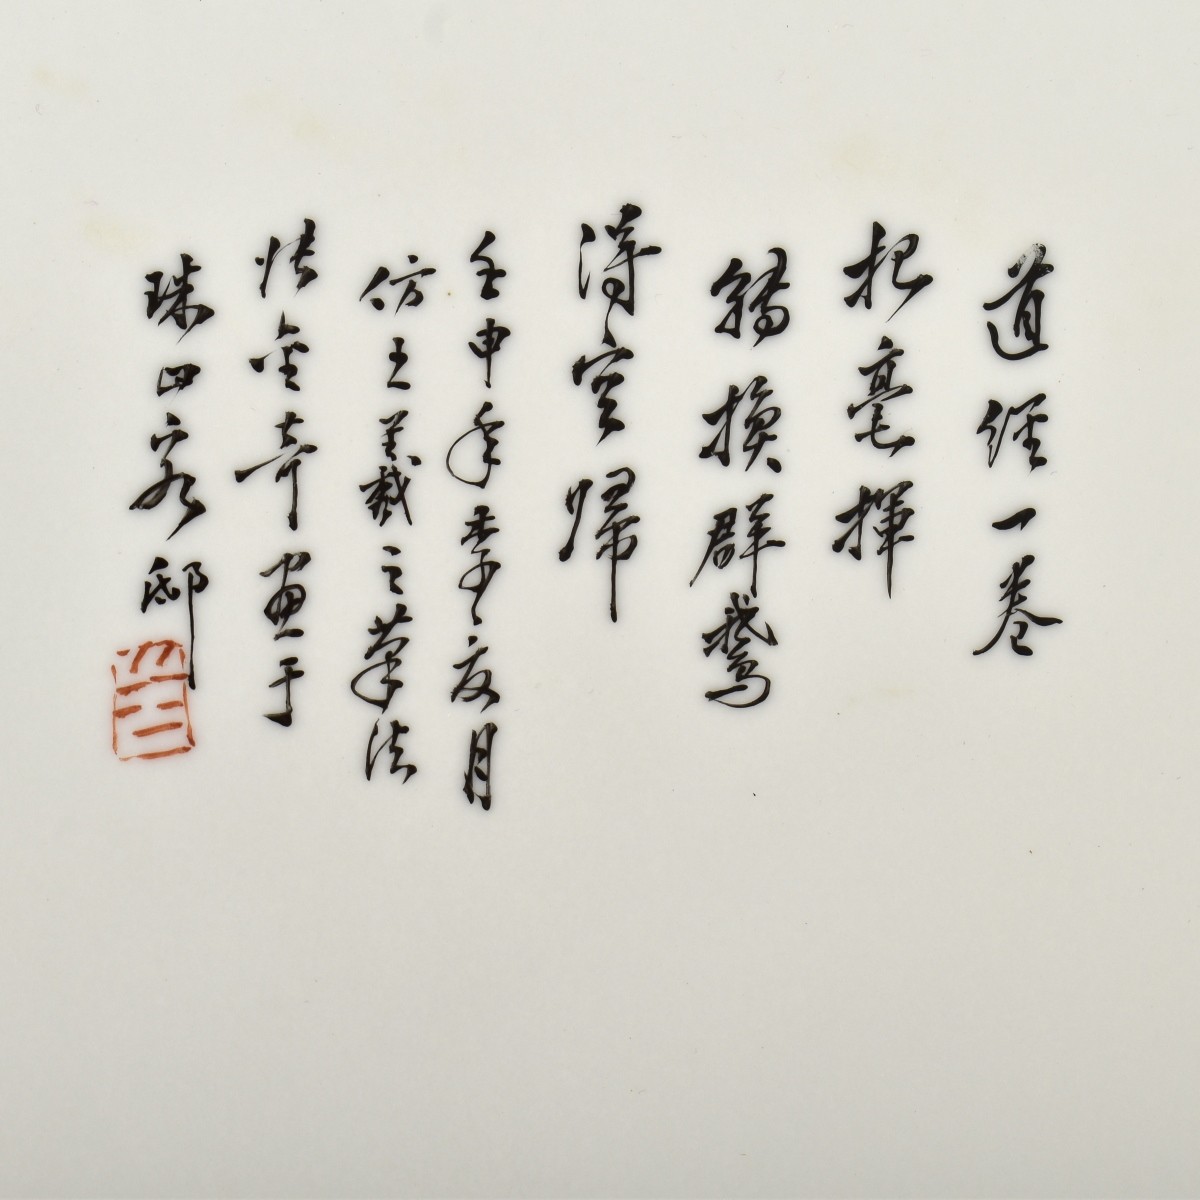 道經一卷
把毫揮
轉換群鵞
淂空歸
壬申年季夏月
仿王羲之筆法
張金奇画于
珠山客邸